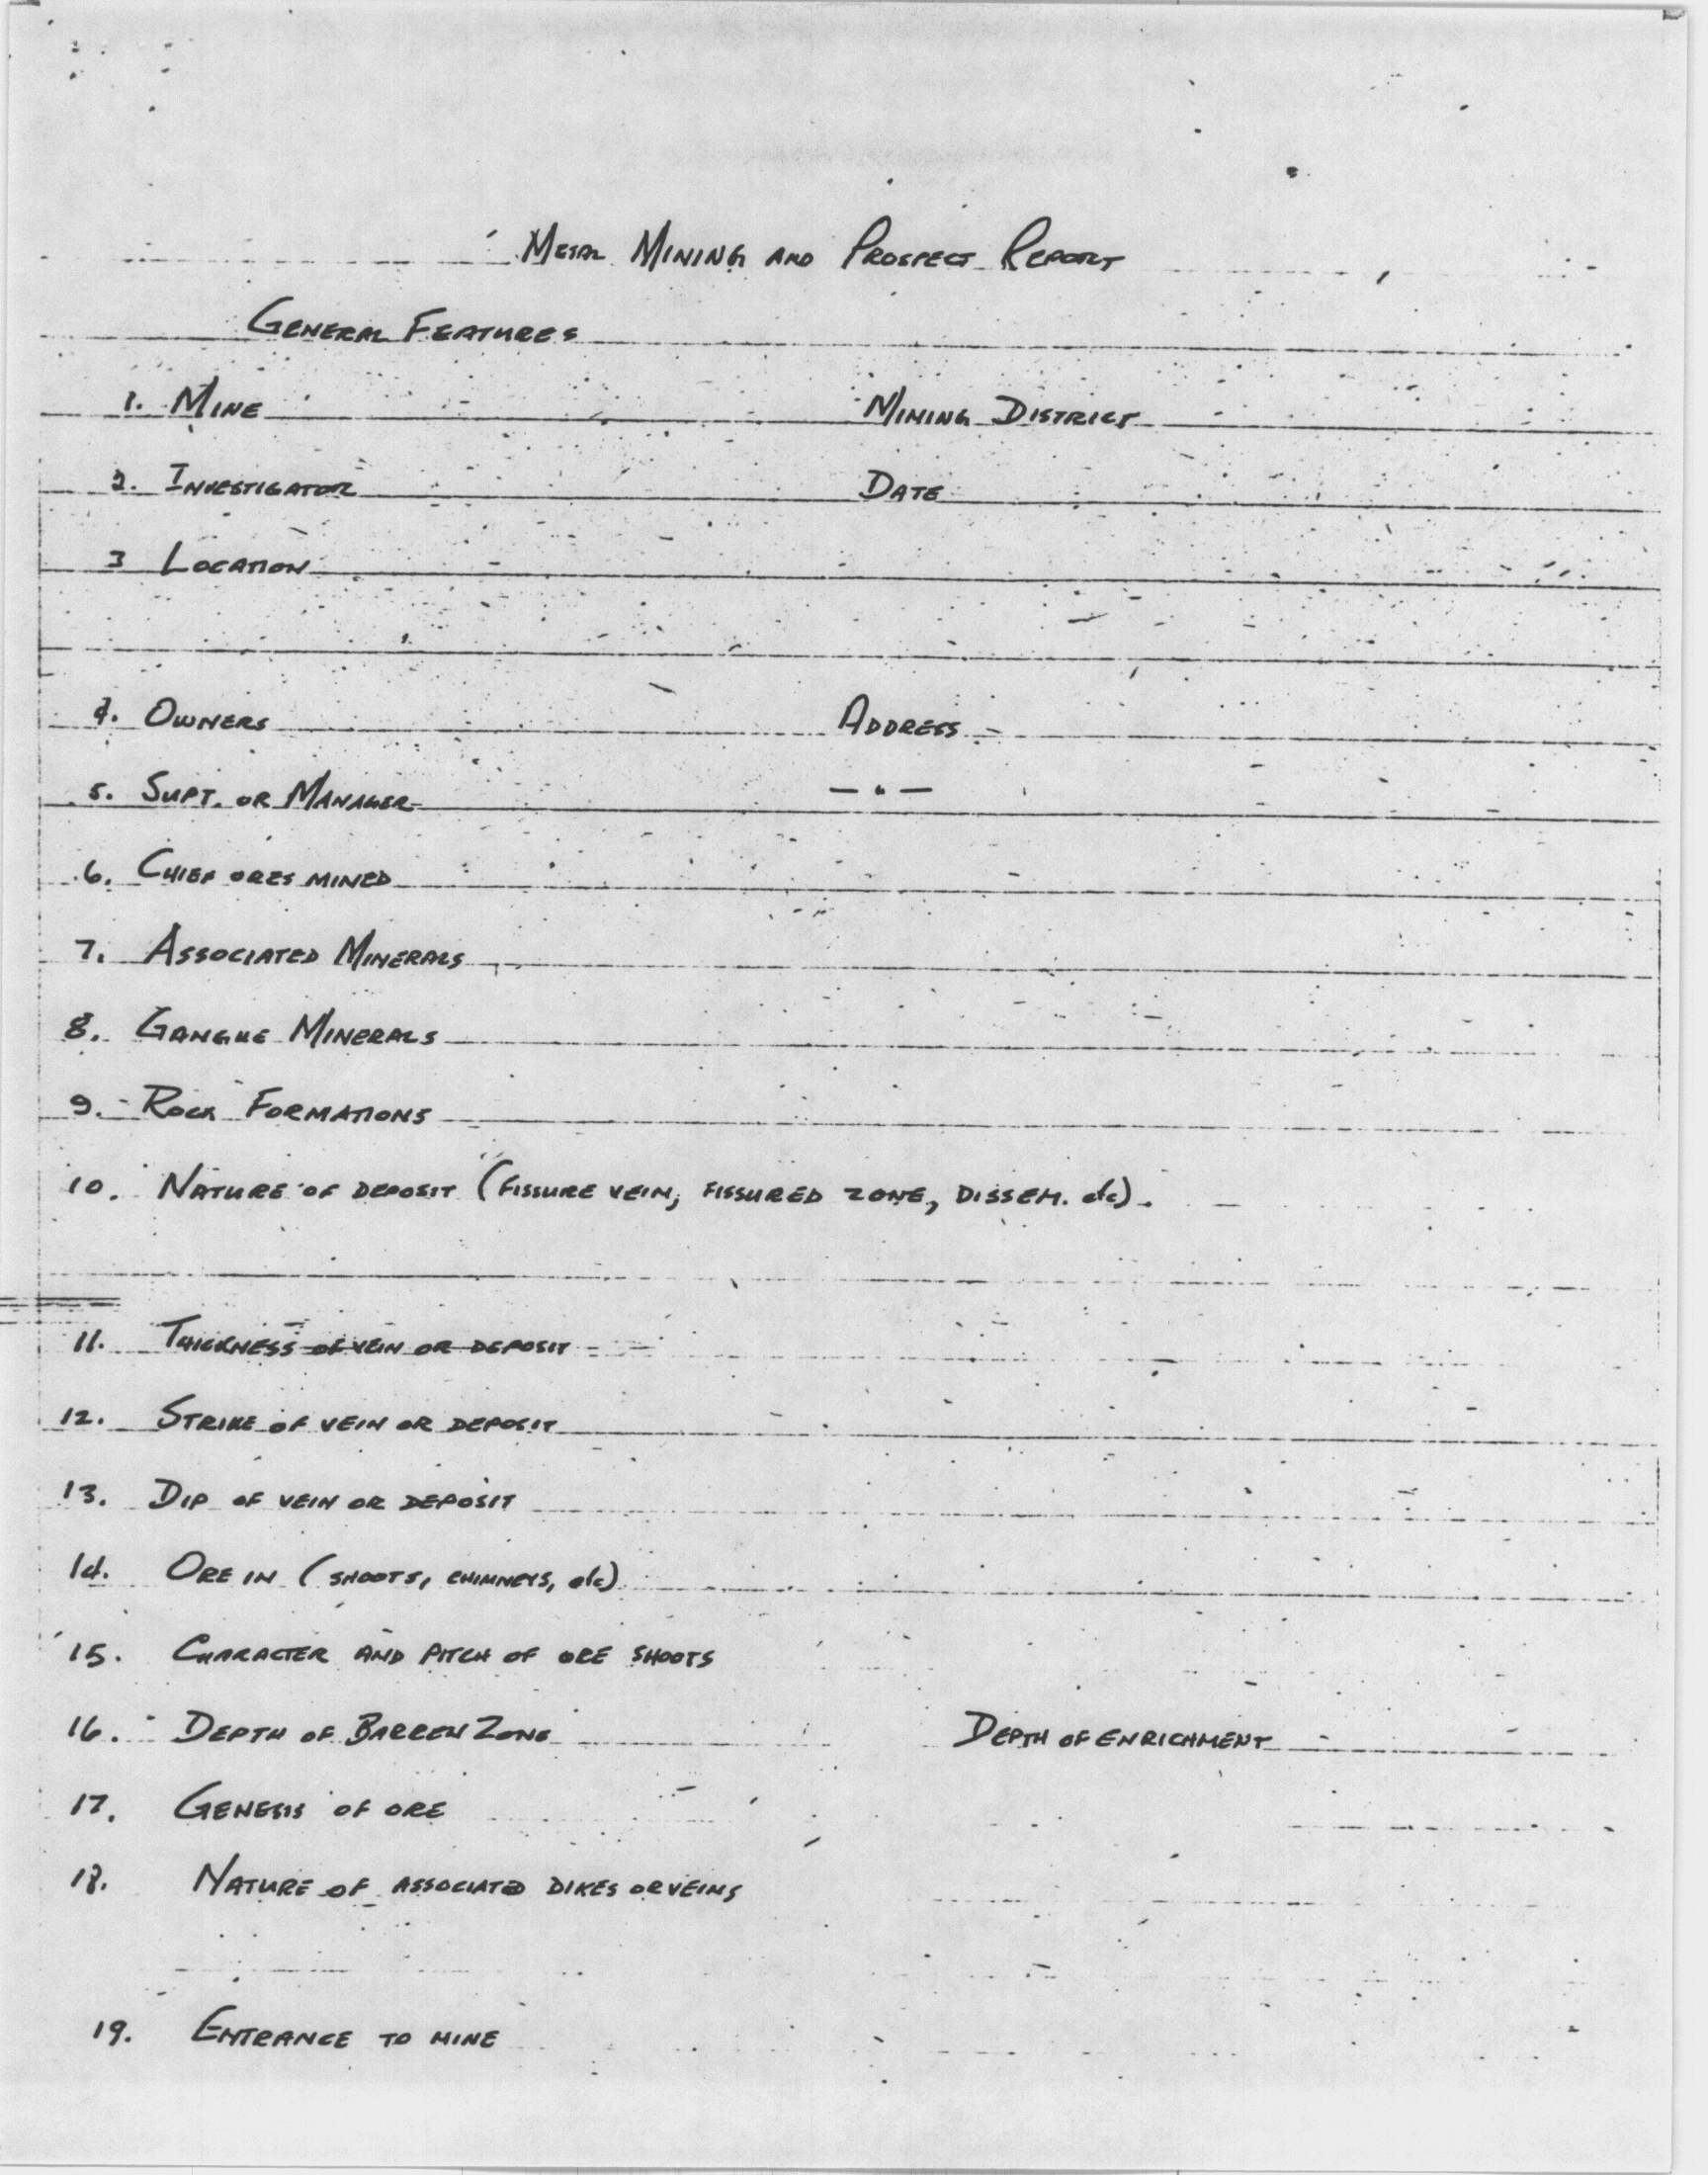 METAL MINING AND PROSPECT REPORT
GENERAL FEATURES
1. MINE MINING DISTRICT
2. INVESTIGATOR DATE
3 LOCATION
4. OWNERS ADDRESS
5. SUPT. OR MANAGER — " —
6. CHIEF ORES MINED
7. ASSOCIATED MINERALS
8. GANGUE MINERALS
9. ROCK FORMATIONS
10. NATURE OF DEPOSIT (FISSURE VEIN, FISSURED ZONE, DISSEM. etc).
11. THICKNESS OF VEIN OR DEPOSIT
12. STRIKE OF VEIN OR DEPOSIT
13. DIP OF VEIN OR DEPOSIT
14. ORE IN (SHOOTS, CHIMNEYS, etc)
15. CHARACTER AND PITCH OF ORE SHOOTS
16. DEPTH OF BARREN ZONE DEPTH OF ENRICHMENT
17. GENESIS OF ORE
18. NATURE OF ASSOCIATED DIKES OR VEINS
19. ENTRANCE TO MINE